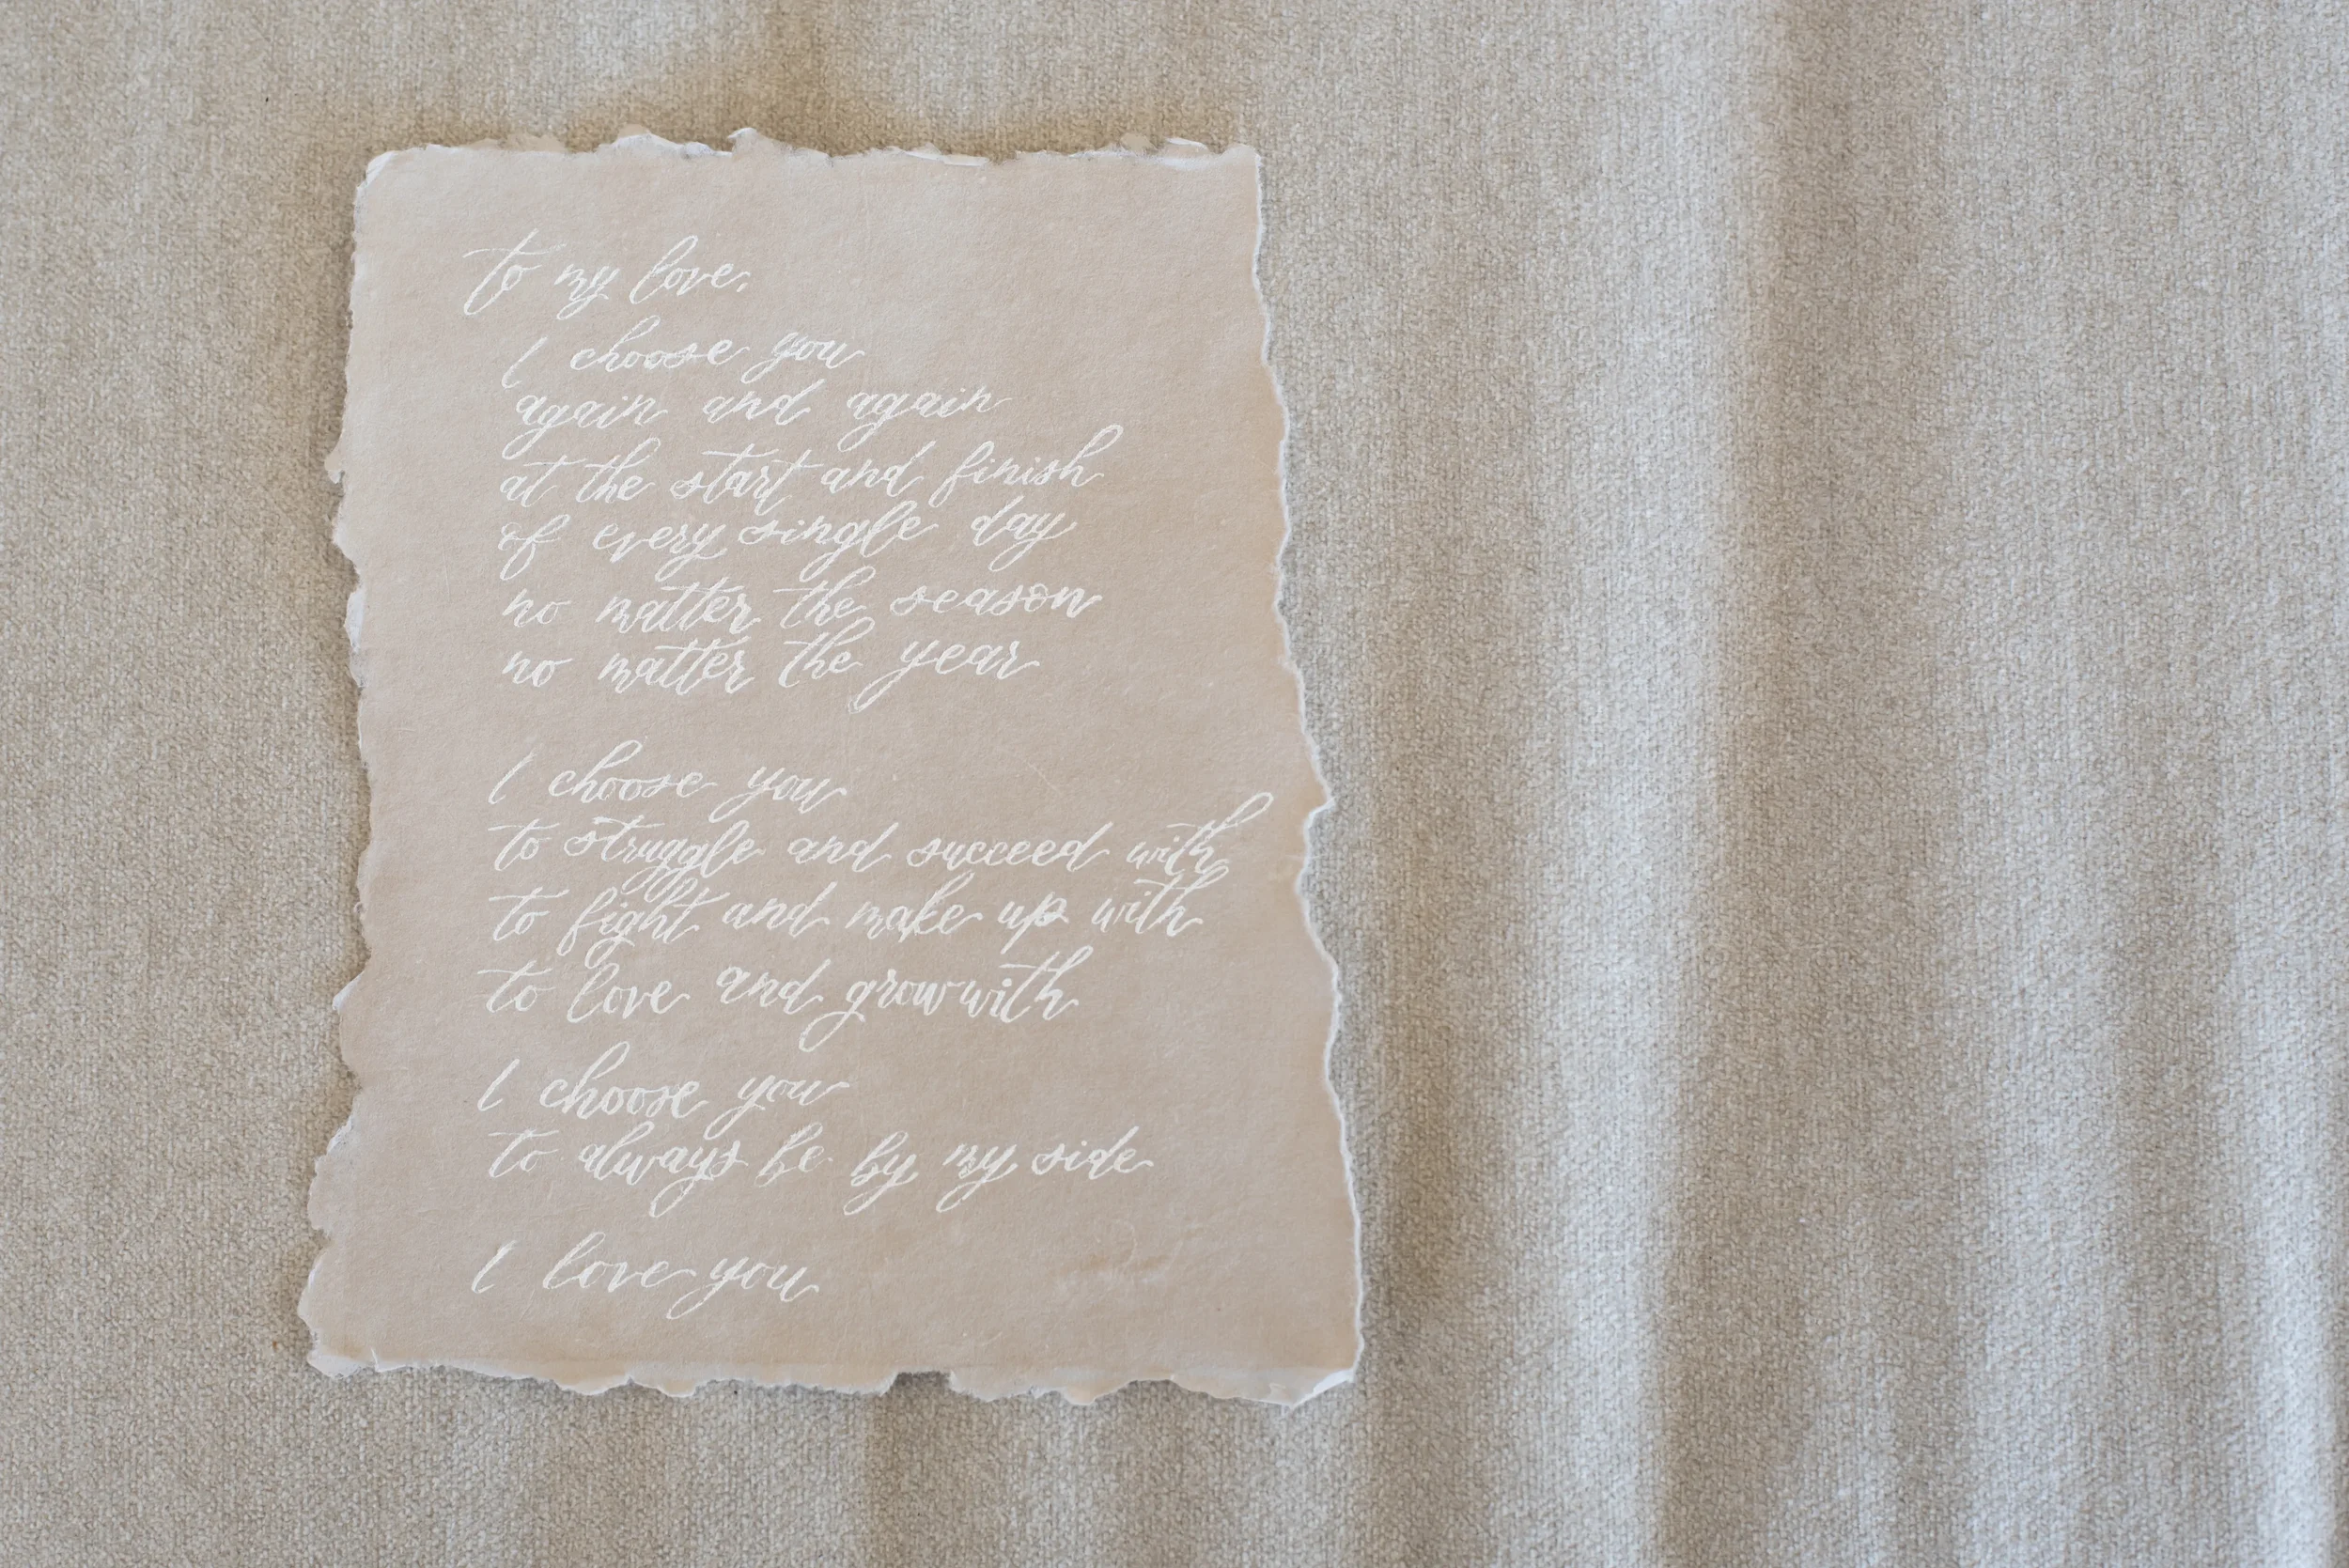 to my love,
I choose you
again and again
at the start and finish
of every single day
no matter the season
no matter the year
I choose you
to struggle and succeed with
to fight and make up with
to love and grow with
I choose you
to always be by my side
I love you